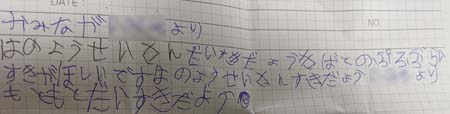 DATE:
NO.
かみなが より
はのようせいさんだいすきだよう
すきがほしいですはのようせいさんすきだよう より
もっともっとだいすきだよう